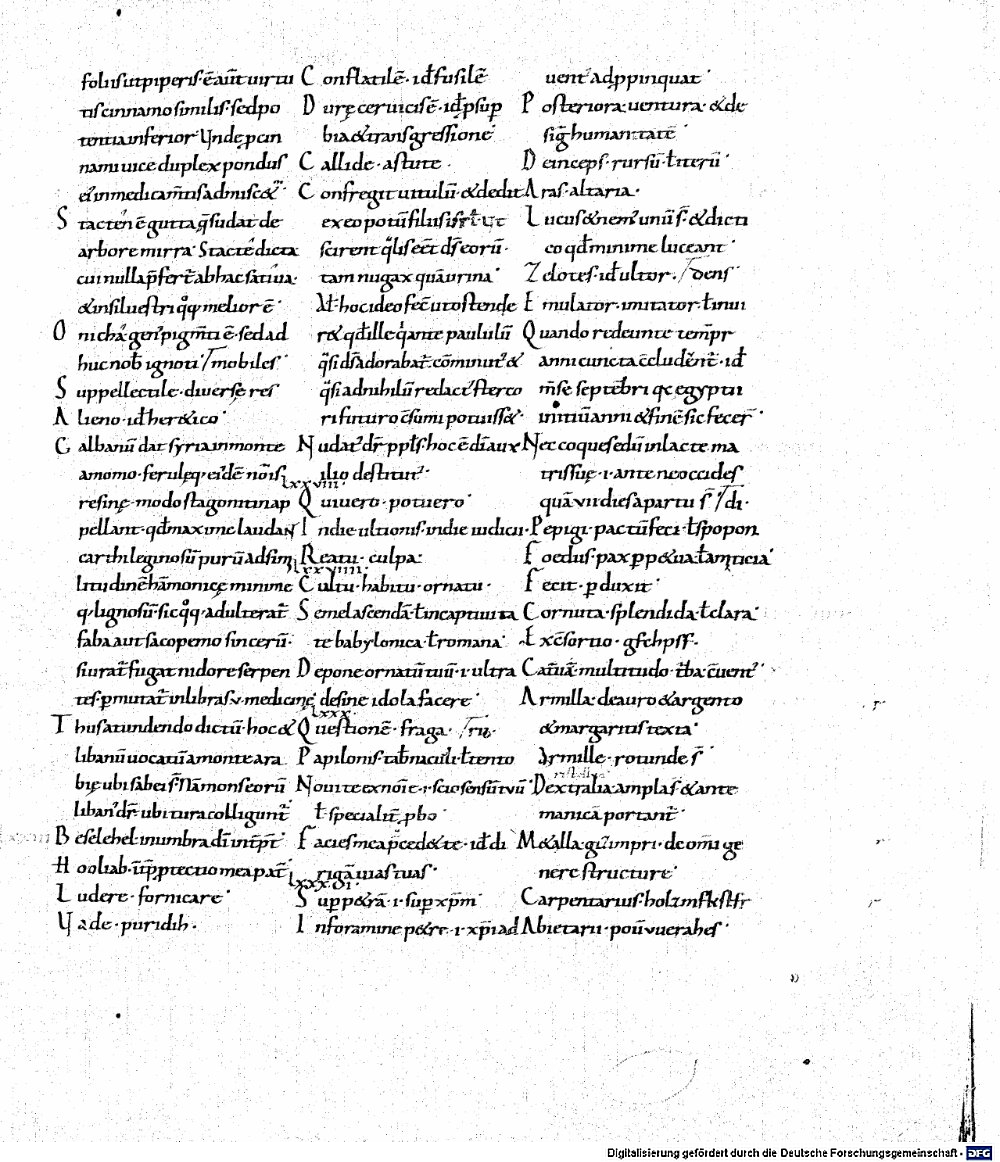 foliis ut piperis· ē aūt uirtu
tis cinnamo similis· sed po
tentia inferior Unde p cin
namı uice duplex pondus
ei' in medicam̄tis admisc&ur̄·
S tacten ē gutta q̄ sudat de
arbore mirra· Stacte dicta
cui nulla p̄fert̄ ab hac satiua·
& in siluestri q̊q; melior ē·
O nicha gen' pigm̄ti ē· sed ad
huc nob̄ ignoti /mobiles·
S uppellectile· diuersę res
A lieno· id her&ico·
G albanū dat syria in monte
amomo· ferulę q; eidē nōis
resinę· modo stagonitin ap
pellant· qd maxime laudaɴ
carthileginosū purū adsim
litudinē hāmonicę minime
q; lignosū· sic q̊q· adulterat̄
faba aut sacopemo sincerū·
si urat̄ fugat nidore serpen
tes· p mutat̄ in libras v· medicinę
T hus a tundendo dictū· hoc &
libanū uocatū a monte ara
bię ubi sabei s̄· Nā mons eorū
liban' dr̄· ubi tura colligunt̄
B eselehel· in umbra dī intp̄t̄
H ooliab· ū p̄ptectio mea pat̄
L udere· fornicare·
Y ade· puridih·
C onflatilē· id fusilē
D urę ceruicis ē· id p sup
bia & transgressione
C allide· astute·
C onfregit uitulū· & dedit
ex eo potū filiis isrl̄· Ut
scirent q̄lis eēt ds̄ eorū·
tam nugax quā urina·
Aƚ· hoc ideo fec̄ ut ostende
r& qd ille q̄ ante paululū
q̄si ds̄ adorabat̄· cōminut' &
q̄si ad nihilū redact' sterco
ri futuro c̄sumi potuiss&·
N udat' dr̄ ppl's· hoc ē dī aux
ilio destitut'·
lxxviii·
Q ui uero· potuero·
I n die ultionis· in die iudicii·
R eatu· culpa:
lxxviiii·
C ultu· habitu· ornatu·
S emel ascendā· ƚ in captiuita
te babylonica· ƚ romana·
D epone ornatū tuū· i· ultra
desine idola facere·
lxxx·
Q uestionē· fraga·
P apilonis· tab̄naculi· ƚ tento
N oui te ex nōie· i· scio sensū tuū·
ƚ specialit̄ pbo·
F acies mea p̄ced& te· id di
rigā uias tuas·
lxxxi·
S up p&rā· i· sup xp̄m·
I n foramine p&re· i· xp̄i ad
uent' ad ppinquat·
P osteriora· uentura· & de
sig̅ humanitatē·
D einceps· rursū· ƚ iterū·
A ras· altaria·
L ucus & nem' unū s̄· & dicti
co qd minime luceant·
Z elotes· id ultor·
E mulator· imitator· ƚ inui
Q uando redeunte temp̄r
anni cuncta c̄cludēnt̄· id
m̄se septēbri qc egyptii
initiū anni & finē sic fecer̄·
N ec coques edū in lacte ma
tris suę· i· ante ne occides
quā vii dies a partu s̄ ·
P epigi· pactū feci· ƚ spopon
F oedus· pax ppetua ƚ amicicia·
F ecit· p duxit·
C ornuta· splendida· ƚ clara·
E x c̄sortio· gfchpff·
C at̄ua· multitudo· ƚ ba· c̄uent'·
A rmilla· de auro & argento
& margaritis texta·
Armille· rotunde s̄·
D extralia· amplas & ante
manicā portant̄·
M &alla· g̅ impri· de omi ge
nere structure·
C arpentarius· holzmfkstfr
A bietarii· poūvuerahes·
Digitalisierung gefördert durch die Deutsche Forschungsgemeinschaft - DFG